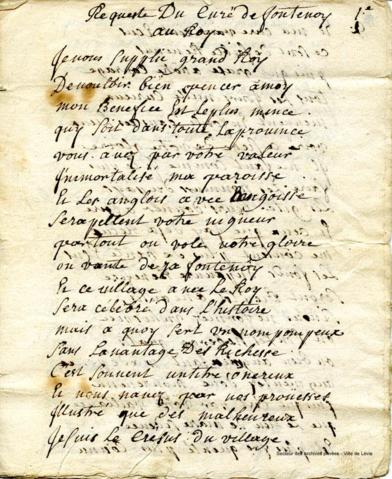 Requeste Du Curé de fontenoy
au Roy
1e
Je vous supplie grand Roy
De vouloir bien pencer a moy
mon Benefice Est le plus mince
quy soit dans toute La province
vous avez par votre valeur
Immortalisé ma paroisse
Et Les anglois avec angoisse
Serapellent votre vigueur
partout on vole votre gloire
on vante deja fontenoy
Et ce village avec Le Roy
Sera celebré dans L'histoire
mais a quoy sert un nom pompeux
Sans Lavantage Des Richesse
C'est souvent un titre onereux
Et vous navez par vos prouesses
Illustré que des malheureux
Je suis le Cresus du village
Secteur des archives privées - Ville de Lévis